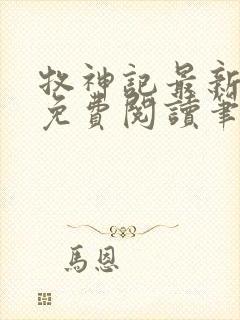 牧神記最新
免費閱讀筆
馬恩